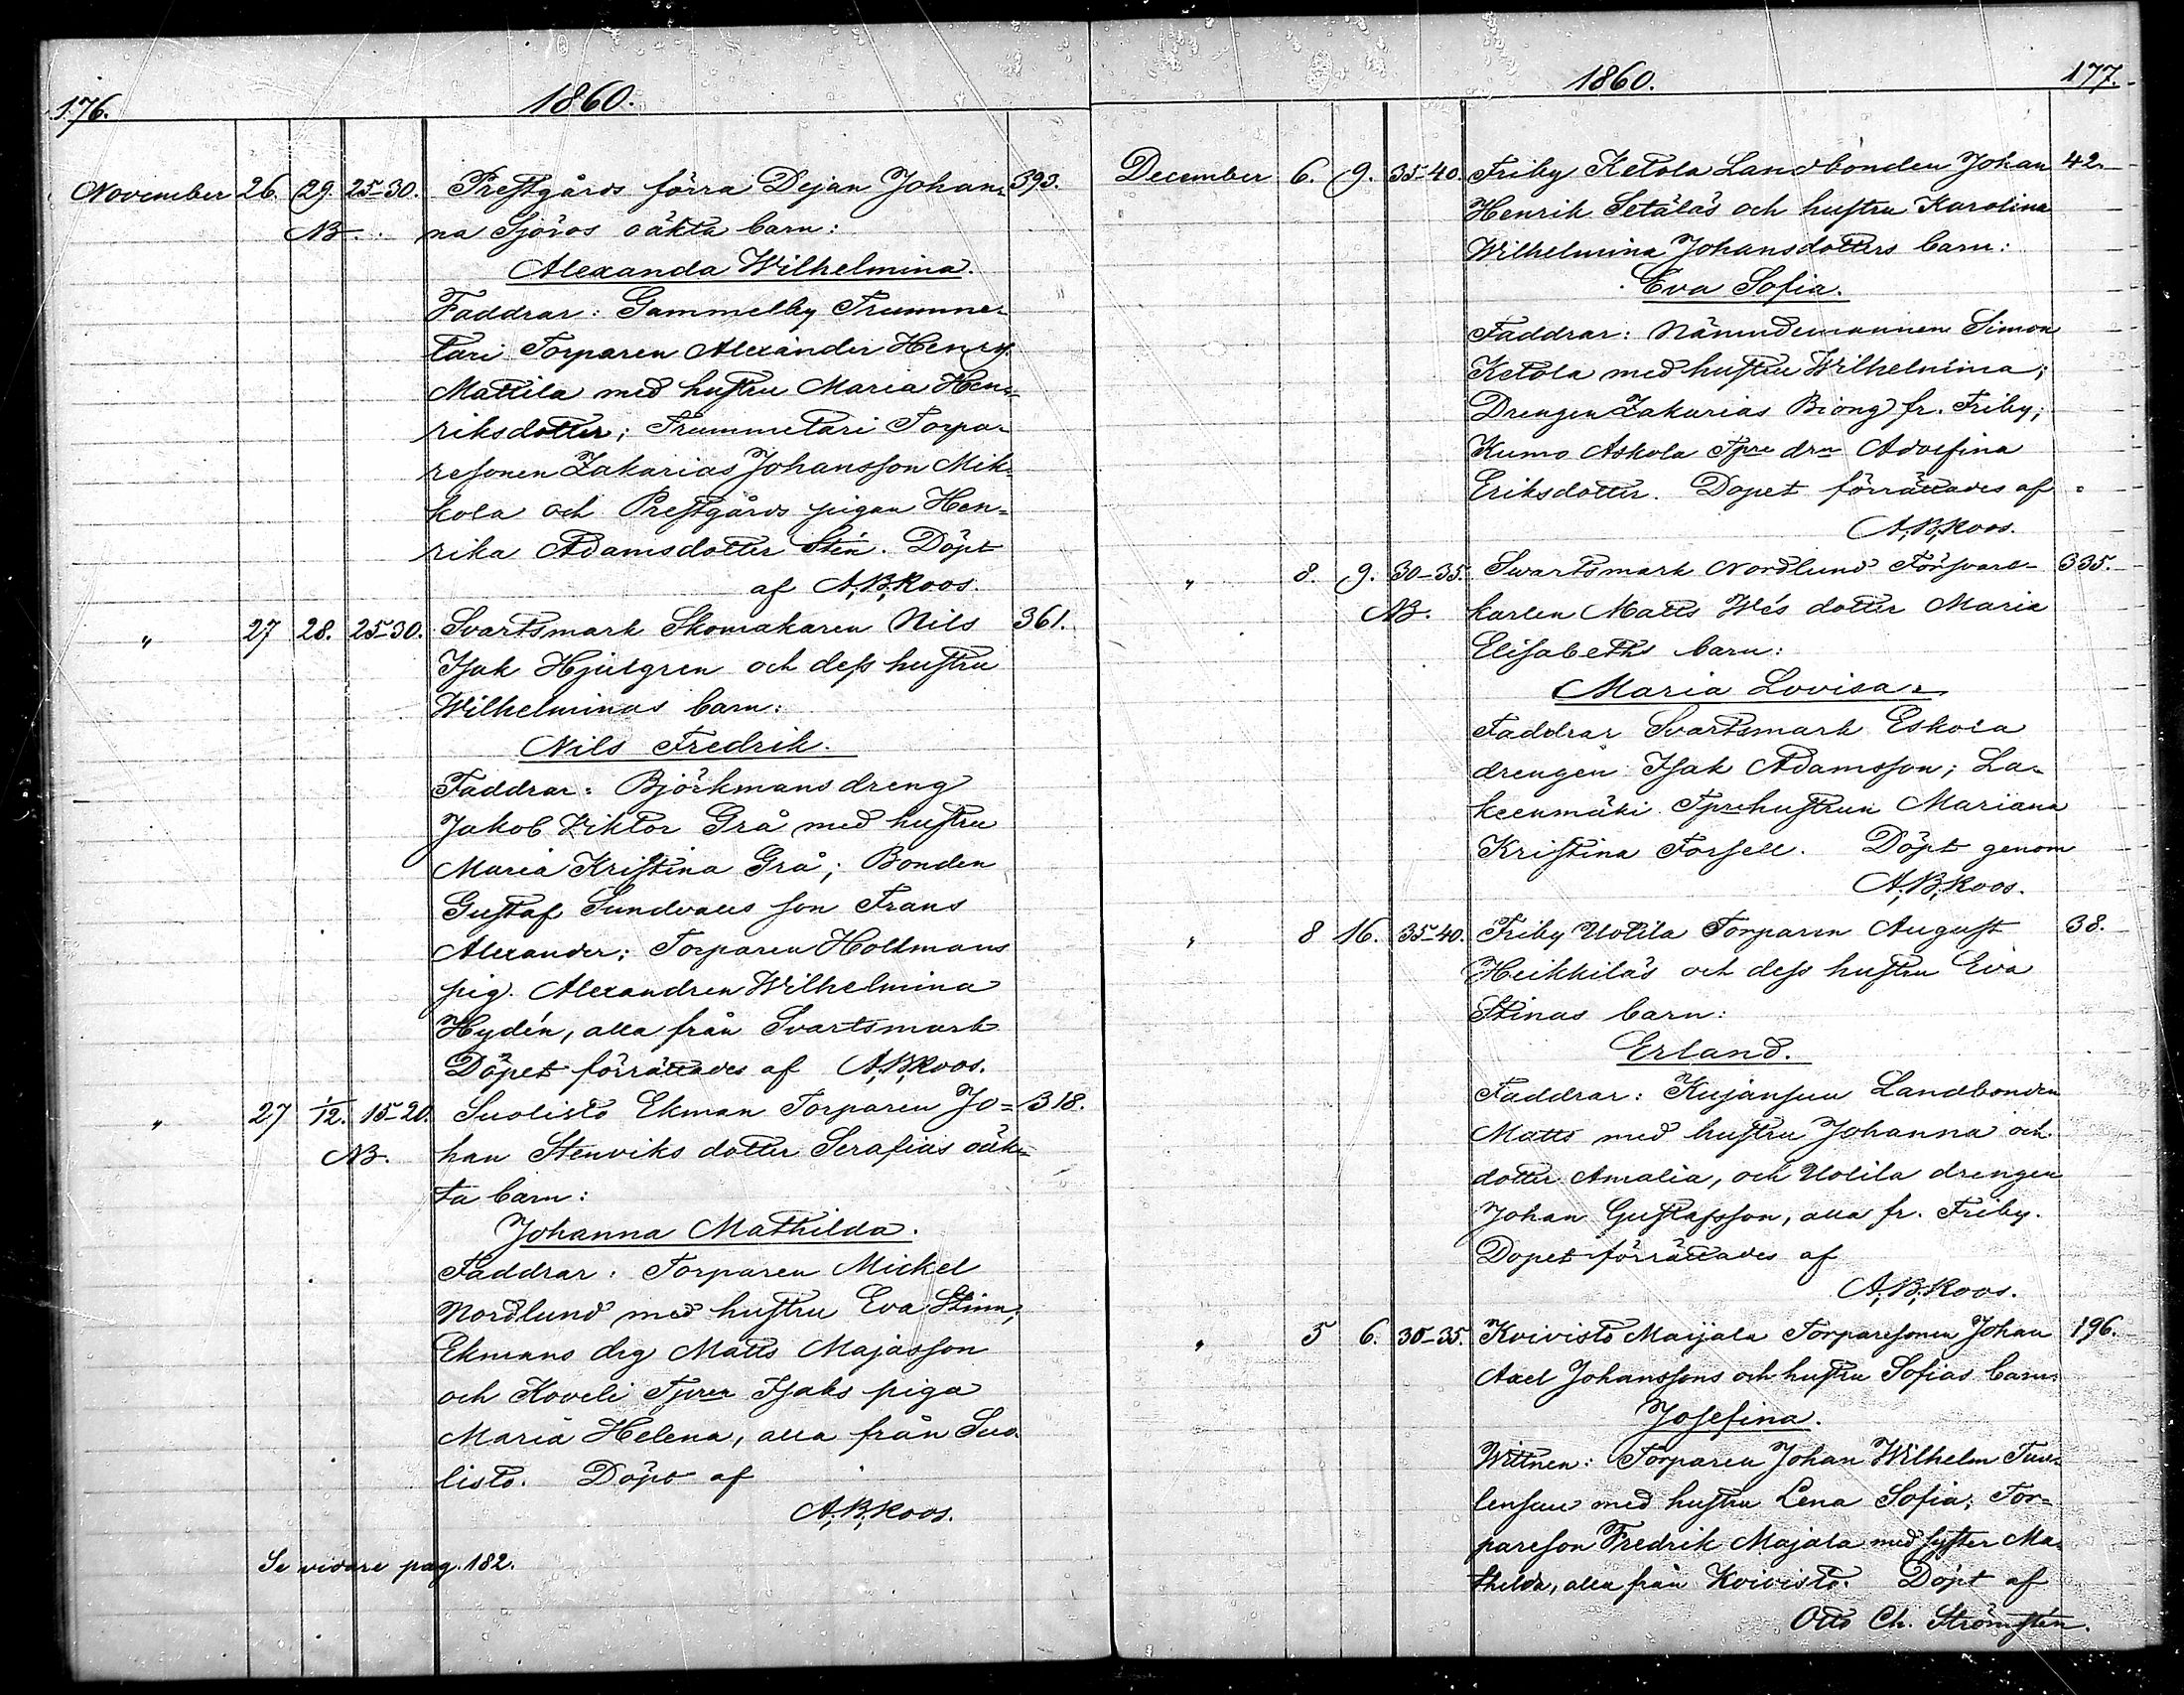 176.
1860.
November 26. 29. 25-30. Prestgårds förra Dejan Johan- 393.
NB. na Sjöros oäkta barn:
Alexanda Wilhelmina.
Faddrar: Gammelby Trumme-
tari Torparen Alexander Henr.
Mattila med hustru Maria Hen-
riksdotter; Trummetari Torpa-
resonen Zakarias Johansson Mik-
kola och Prestgårds pigan Hen-
rika Adamsdotter Stén. Döpt
af A,B,Roos.
" 27 28. 25-30. Svartsmark Skomakaren Nils 361.
Isak Hjulgren och dess hustru
Wilhelminas barn:
Nils Fredrik.
Faddrar: Björkmans dreng
Jakob Viktor Grå med hustru
Maria Kristina Grå; Bonden
Gustaf Sundvalls son Frans
Alexander; Torparen Holtmans
pig. Alexandren Wilhelmina
Hydén, alla från Svartsmark
Döpet förrättades af A,B,Roos.
" 27 1/12. 15-20. Suolisto Ekman Torparen Jo= 318.
NB. han Stenviks dotter Serafias oäk-
ta barn:
Johanna Mathilda.
Faddrar: Torparen Mickel
Nordlund med hustru Eva Stina;
Ekmans drg Matts Majasson
och Koveli Tprer Isaks piga
Maria Helena, alla från Suo-
listo. Döpt af
A,B,Roos.
Se vidare pag. 182.
1860.
177.
December 6. 9. 35-40. Friby Ketola Landbonden Johan 42.
Henrik Setälä's och hustru Karolina
Wilhelmina Johansdotters barn:
Eva Sofia.
Faddrar: Nämndemannen Simon
Ketola med hustru Wilhelmina;
Drengen Zakarias Biong fr. Friby;
Kumo Askola Tpre drn Adolfina
Eriksdotter. Dopet förrättades af
A,B,Roos.
" 8. 9. 30-35. Svartsmark Nordlund Försvars- 335.
NB. karlen Matts We's dotter Maria
Elisabeths barn:
Maria Lovisa.
Faddrar Svartsmark Eskola
drengen Isak Adamsson; La-
keenmäki Tprehustrun Mariana
Kristina Forsell. Döpt genom
A,B,Roos.
" 8 16. 35-40. Friby Uotila Torparen August 38.
Heikkilä's och dess hustru Eva
Stinas barn:
Erland.
Faddrar: Kujansuu Landbonden
Matts med hustru Johanna och
dotter Amalia, och Uotila drengen
Johan Gustafsson, alla fr. Friby.
Dopet förrättades af
A,B,Roos.
" 5 6. 30-35. Koivisto Maijala Torparesonen Johan 196.
Axel Johanssons och hustru Sofias barn:
Josefina.
Wittnen: Torparen Johan Wilhelm Tuu-
lensuu med hustru Lena Sofia; Tor-
pareson Fredrik Majala med syster Ma-
thilda, alla från Koivisto. Döpt af
Otto Ch. Strömstén.